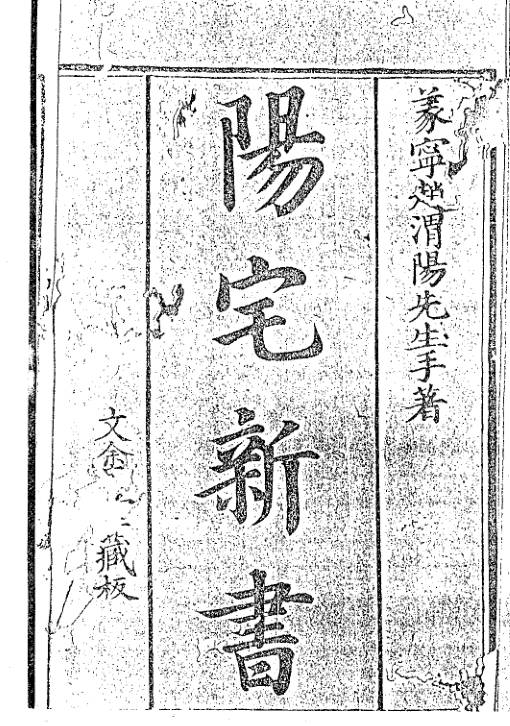 義寧趙渭陽先生手著
陽宅新書
文金 藏板